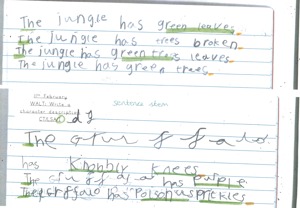 The jungle has green leaves.
The jungle has trees broken.
The jungle has green trees leaves
The jungle has green trees.
February
WALT: Write a
sentence stem
character description
The Gruffalo
has Knobbly Knees
The Gruffalo has purple
has Poisonus Prickles